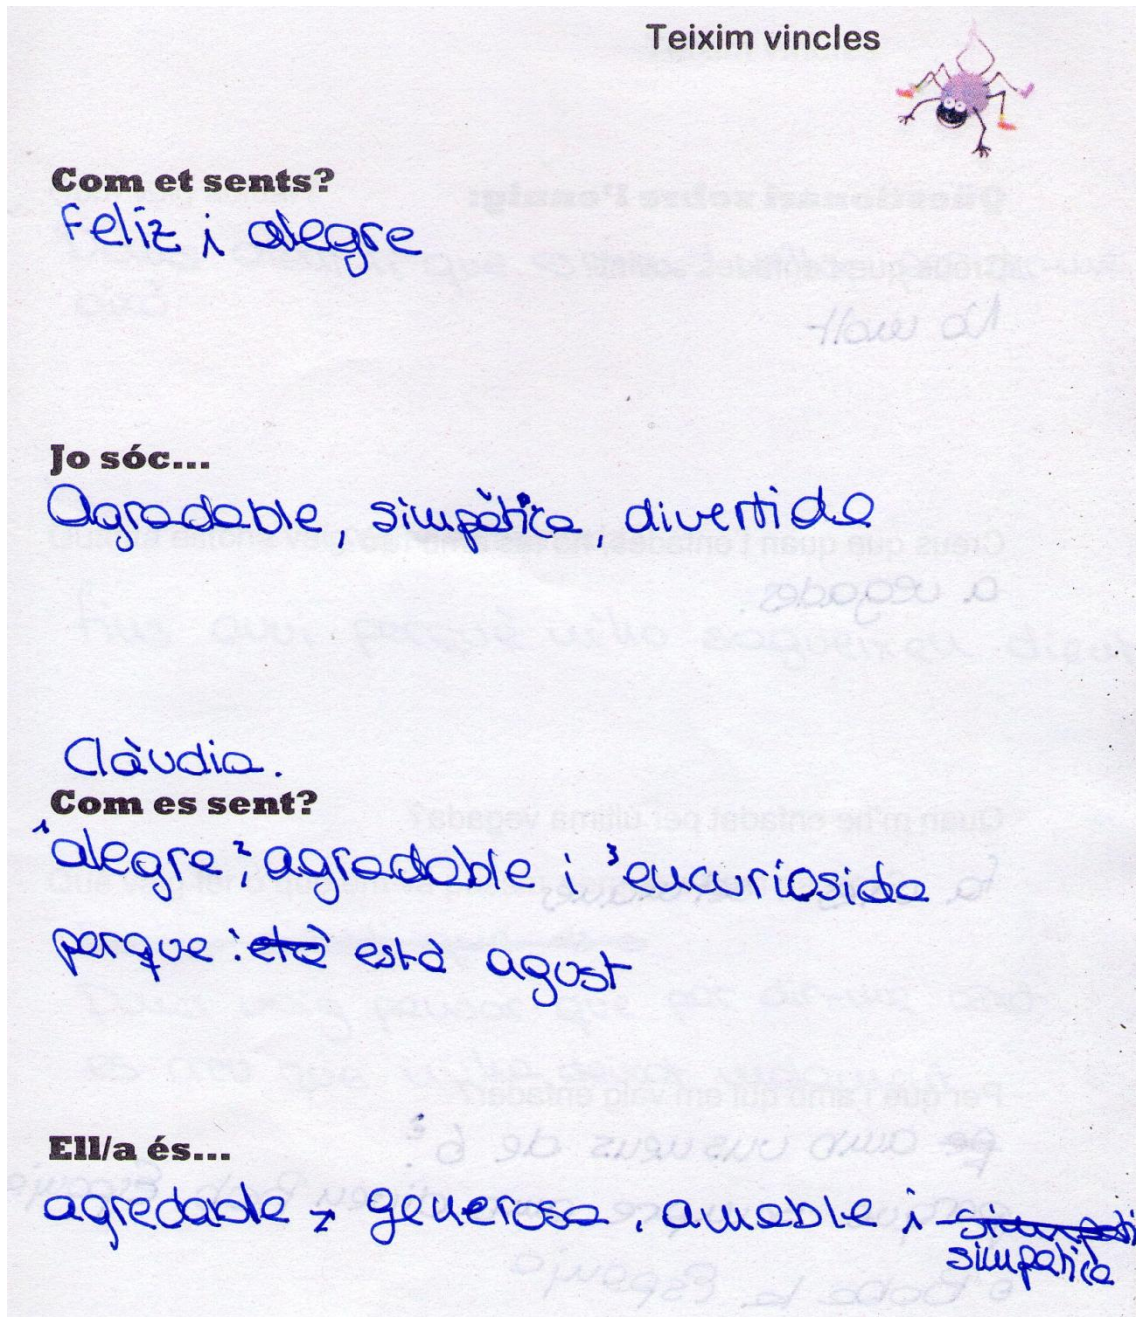 Teixim vincles
Com et sents?
Feliz i alegre
Jo sóc...
Agradable, simpàtica, divertida
Clàudia.
Com es sent?
1 alegre, 2 agradable i 3 encuriosida
perque: età està agust
Ell/a és...
agradable, generosa, amable i simpati
simpatica